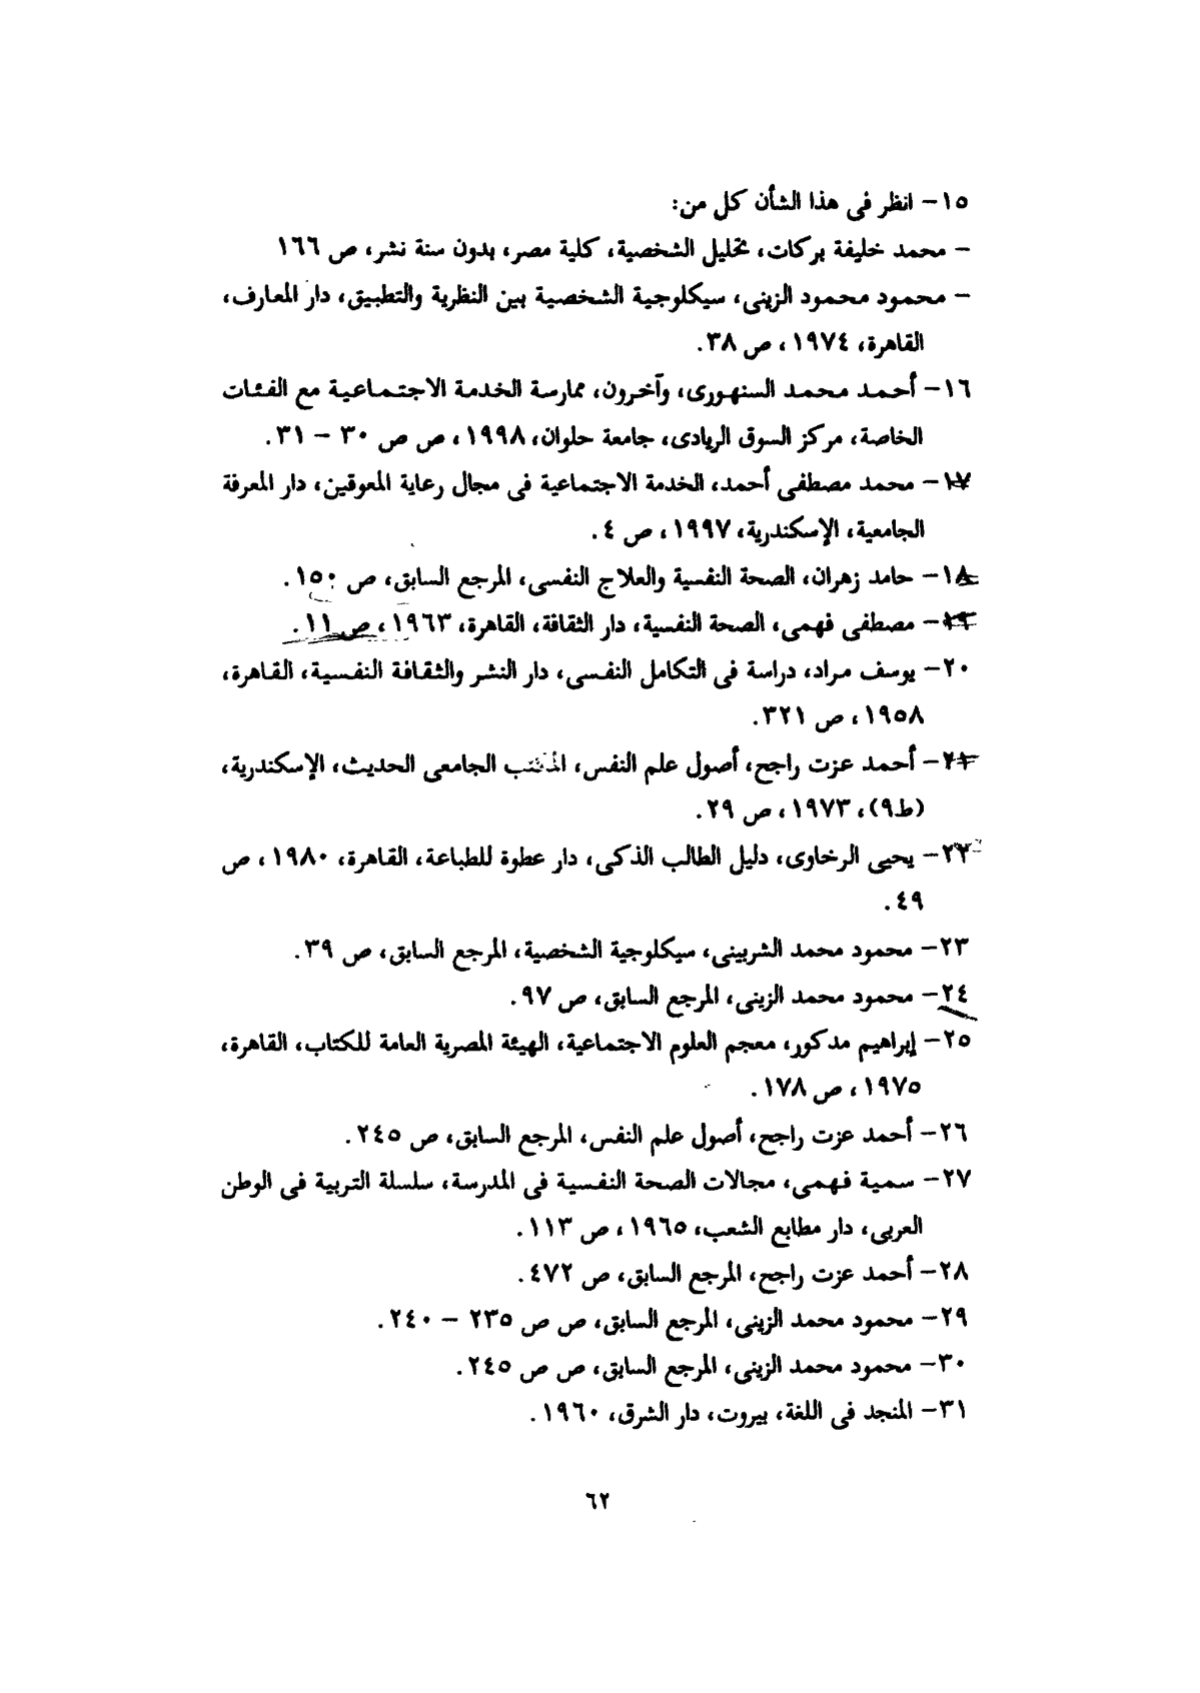 ١٥- انظر فى هذا الشأن كل من:
- محمد خليفة بركات، تحليل الشخصية، كلية مصر، بدون سنة نشر، ص ١٦٦
- محمود محمود الزينى، سيكلوجية الشخصية بين النظرية والتطبيق، دار المعارف،
القاهرة، ١٩٧٤، ص ٣٨.
١٦- أحمد محمد السنهورى، وآخرون، ممارسة الخدمة الاجتماعية مع الفئات
الخاصة، مركز السوق الريادى، جامعة حلوان، ١٩٩٨، ص ص ٣٠ - ٣١.
١٧- محمد مصطفى أحمد، الخدمة الاجتماعية فى مجال رعاية المعوقين، دار المعرفة
الجامعية، الإسكندرية، ١٩٩٧، ص ٤.
١٨- حامد زهران، الصحة النفسية والعلاج النفسى، المرجع السابق، ص ١٥٠.
١٩- مصطفى فهمى، الصحة النفسية، دار الثقافة، القاهرة، ١٩٦٣، ص ١١.
٢٠- يوسف مراد، دراسة فى التكامل النفسى، دار النشر والثقافة النفسية، القاهرة،
١٩٥٨، ص ٣٢١.
٢١- أحمد عزت راجح، أصول علم النفس، المكتب الجامعى الحديث، الإسكندرية،
(ط٩)، ١٩٧٣، ص ٢٩.
٢٢- يحيى الرخاوى، دليل الطالب الذكى، دار عطوة للطباعة، القاهرة، ١٩٨٠، ص
٤٩.
٢٣- محمود محمد الشربينى، سيكلوجية الشخصية، المرجع السابق، ص ٣٩.
٢٤- محمود محمد الزينى، المرجع السابق، ص ٩٧.
٢٥- إبراهيم مدكور، معجم العلوم الاجتماعية، الهيئة المصرية العامة للكتاب، القاهرة،
١٩٧٥، ص ١٧٨.
٢٦- أحمد عزت راجح، أصول علم النفس، المرجع السابق، ص ٢٤٥.
٢٧- سمية فهمى، مجالات الصحة النفسية فى المدرسة، سلسلة التربية فى الوطن
العربى، دار مطابع الشعب، ١٩٦٥، ص ١١٣.
٢٨- أحمد عزت راجح، المرجع السابق، ص ٤٧٢.
٢٩- محمود محمد الزينى، المرجع السابق، ص ص ٢٣٥ - ٢٤٠.
٣٠- محمود محمد الزينى، المرجع السابق، ص ص ٢٤٥.
٣١- المنجد فى اللغة، بيروت، دار الشرق، ١٩٦٠.
٦٢